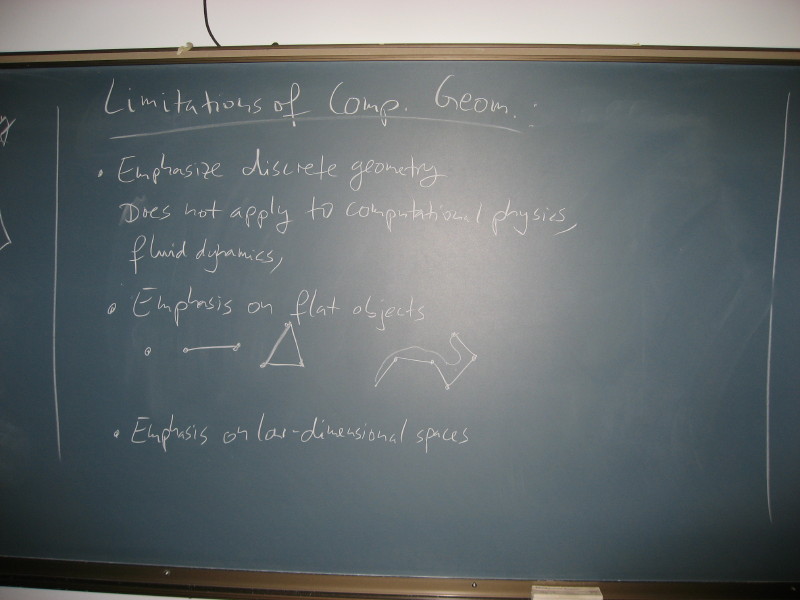 Limitations of Comp. Geom.:
• Emphasize discrete geometry
Does not apply to computational physics,
fluid dynamics,
• Emphasis on flat objects
• Emphasis on low-dimensional spaces